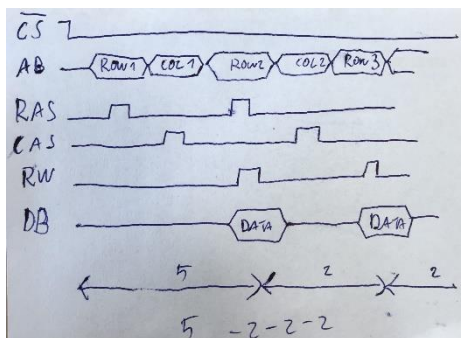 CS
AB ROW1 COL1 ROW2 COL2 ROW3
RAS
CAS
RW
DB DATA DATA
5 2 2
5 -2-2-2